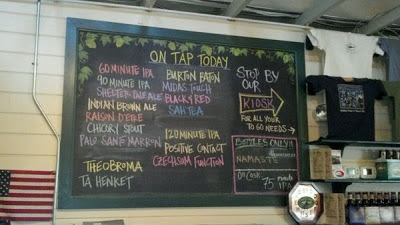 ON TAP TODAY
60 MINUTE IPA
90 MINUTE IPA
SHELTER PALE ALE
INDIAN BROWN ALE
RAISON D'ETRE
CHICORY STOUT
PALO SANTO MARRON
THEOBROMA
TA HENKET
BURTON BATON
MIDAS TOUCH
BLACK & RED
SAH TEA
120 MINUTE IPA
POSITIVE CONTACT
CZECHSOM FUNCTION
STOP BY
OUR
KIOSK
FOR ALL YOUR
TO GO NEEDS
BOTTLES ONLY!!
NAMASTE
ON CASK
75 minute
IPA